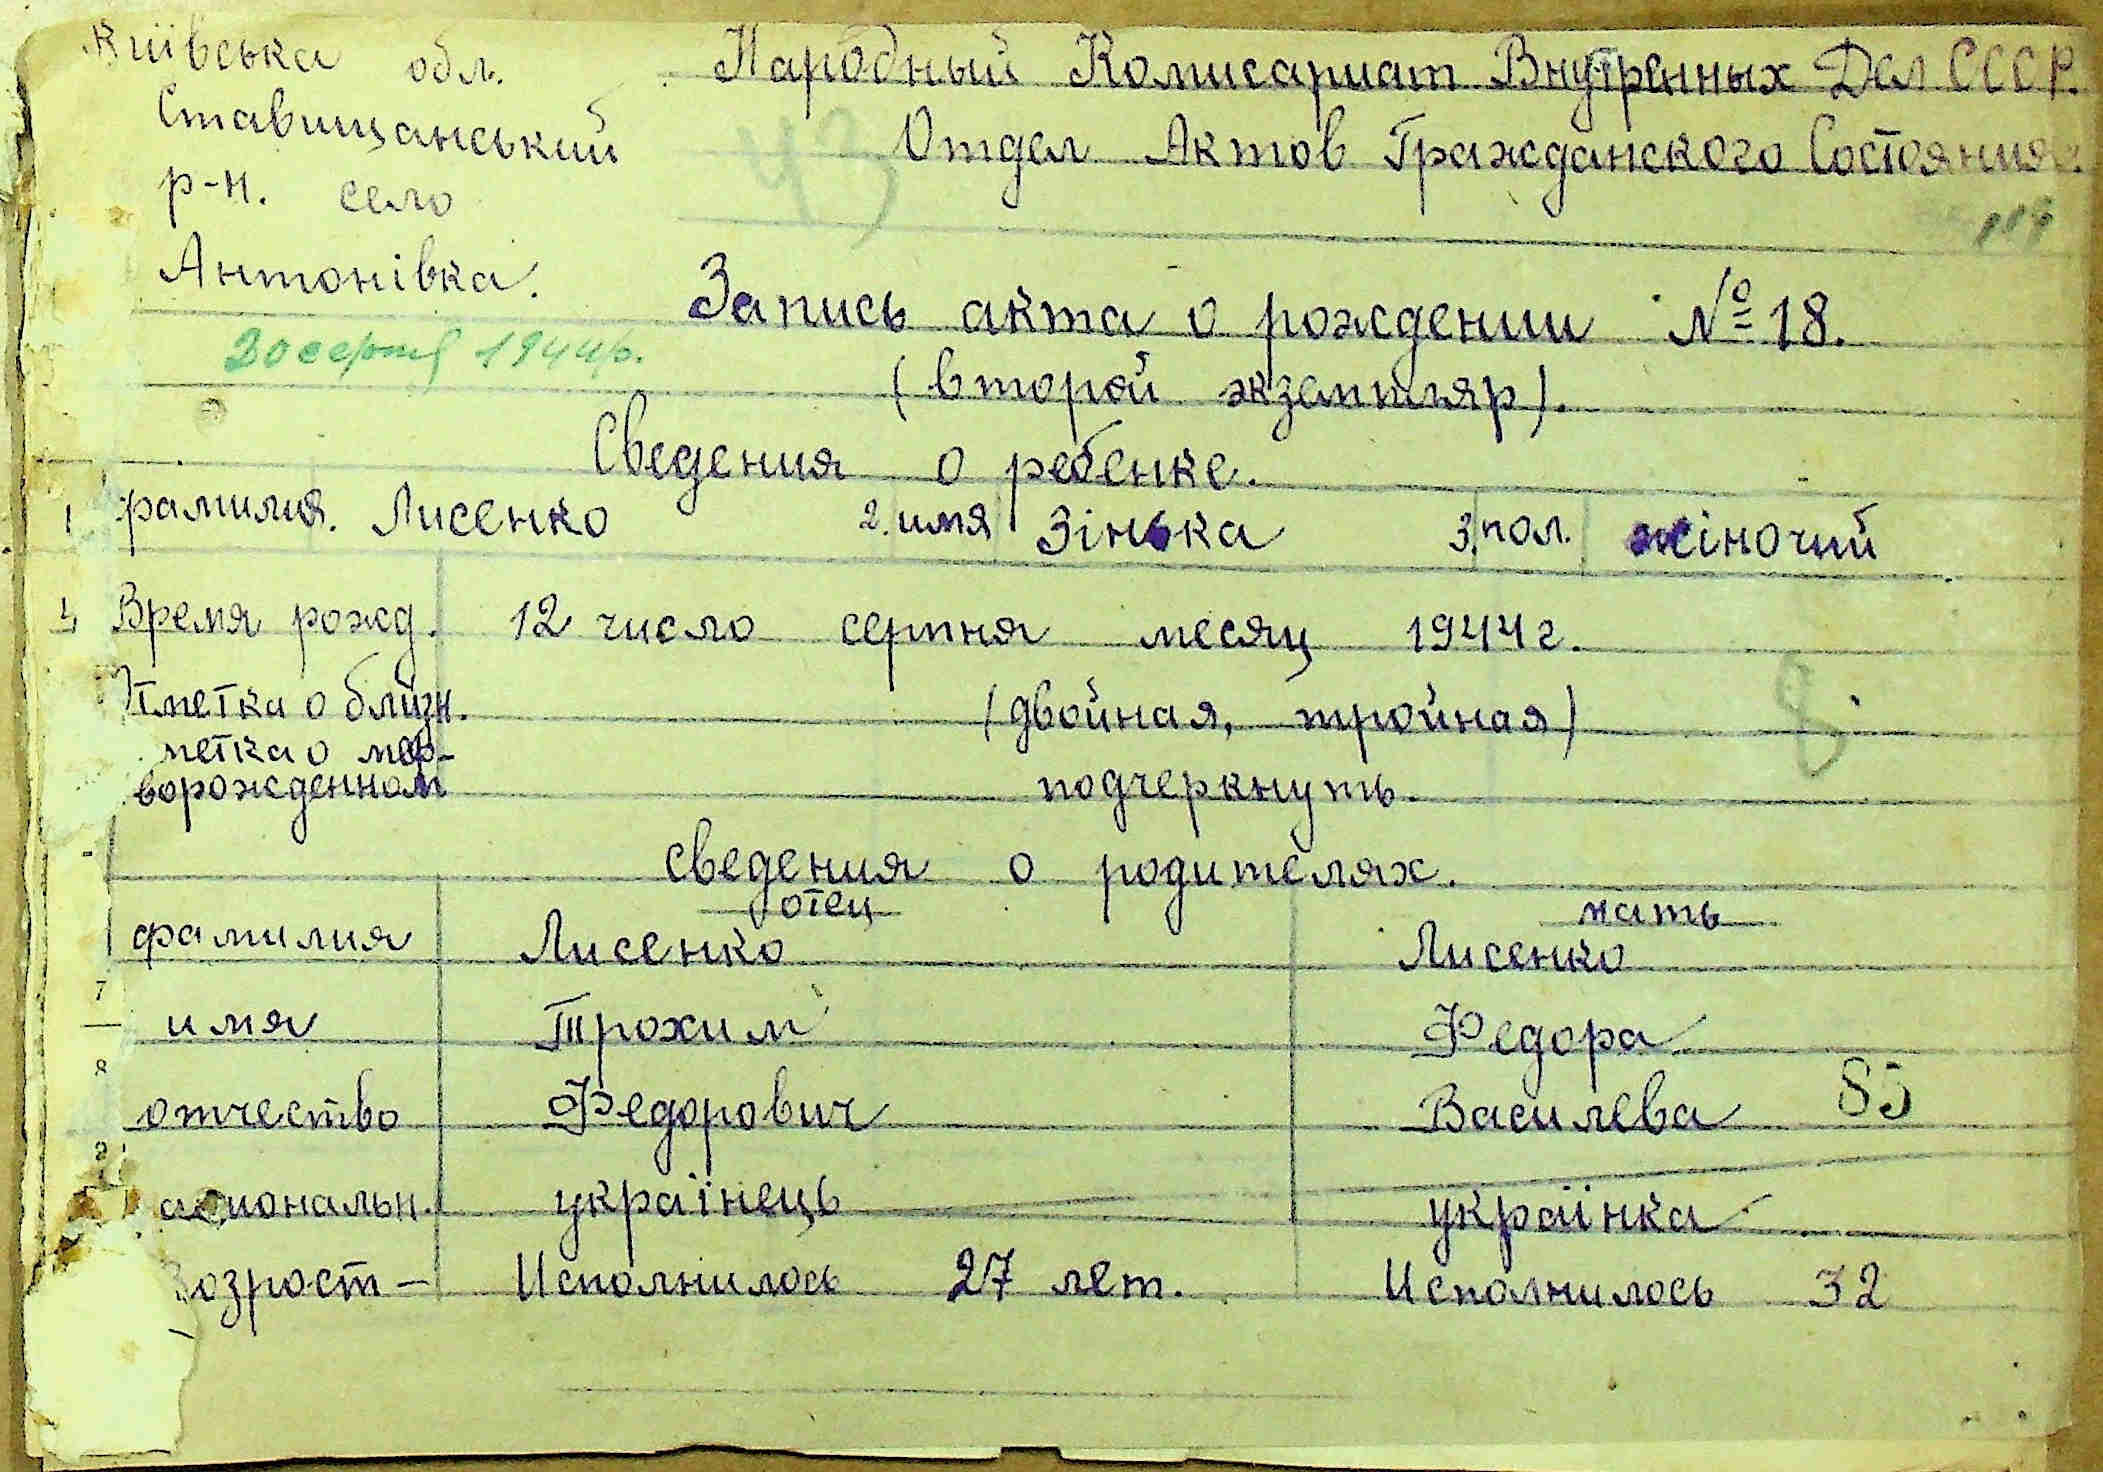 Київська обл.
Ставищанський
р-н. село
Антонівка.
20 серпня 1944р.
Народный Комисариат Внутренных Дел СССР.
Отдел Актов Гражданского Состояния.
43
Запись акта о рождении № 18.
(второй экземпляр).
Сведения о ребенке.
1 фамилия. Лисенко 2. имя Зінька 3. пол. жіночий
4 Время рожд. 12 число серпня месяц 1944 г.
Отметка о близн. (двойная, тройная)
метка о мер-
ворожденном подчеркнуть.
8
сведения о родителях.
отец мать
фамилия Лисенко Лисенко
7 имя Трохим Федора
8 отчество Федорович Василева 85
ациональн. українець українка
Возрост – Исполнилось 27 лет. Исполнилось 32